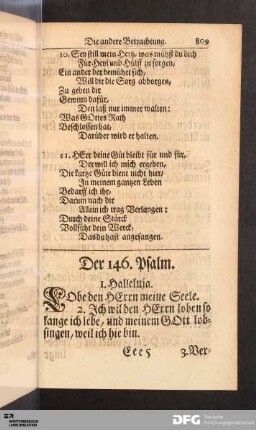 Die andere Betrachtung. 809
10. Sey still mein Hertz, was mühst du dich
Für Heyl und Hülff zu sorgen,
Ein ander der bemühet sich,
Will dir die Sorg abborgen,
Zu geben dir
Gewinn dafür,
Den laß nur immer walten:
Was GOttes Rath
Beschlossen hat,
Darüber wird er halten.
11. HErr deine Güt bleibt für und für,
Der will ich mich ergeben,
Die kurtze Güte dient nicht hier,
In meinem gantzen Leben
Bedarff ich ihr,
Darum nach dir
Allein ich trag Verlangen:
Durch deine Stärck
Vollführ dein Werck,
Das du hast angefangen.
Der 146. Psalm.
1. Halleluja.
LObe den HErrn meine Seele.
2. Ich wil den HErrn loben so
lange ich lebe, und meinem GOtt lob-
singen, weil ich hie bin.
Eee 5 3. Ver-
DFG Deutsche
Forschungsgemeinschaft